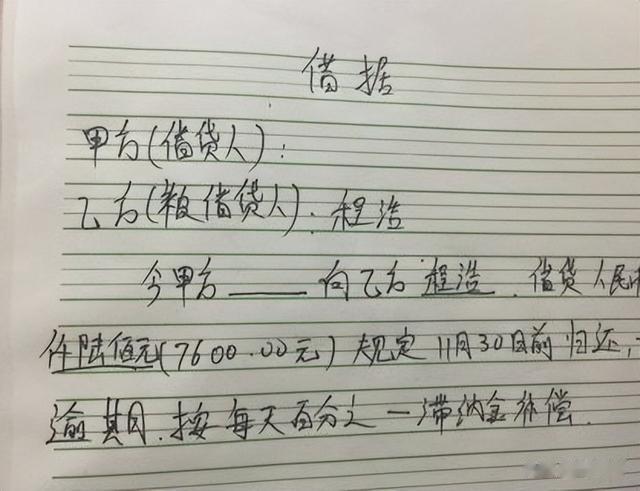 借据
甲方(借贷人):
乙方(被借贷人):程浩
今甲方 向乙方 程浩 . 借贷人民
仟陆佰元(7600.00元)规定11月30日前归还,
逾期,按每天百分之一滞纳金补偿.